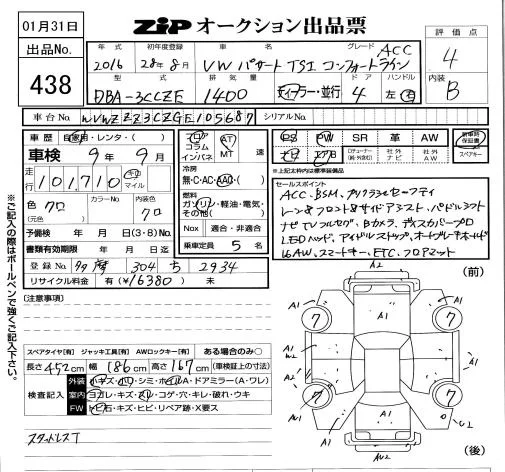 01月31日
出品No.
438
ZIP オークション出品票
年式 2016
初年度登録 28年8月
車名 VW パサート TSI コンフォートライン
グレード ACC
型式 DBA-3CCZE
排気量 1400
ディーラー・並行
ドア 4
ハンドル 左・右
4
内装 B
車台No. WVWZZZ3CZGE105687
シリアルNo.
車歴 自家用・レンタ・( )
車検 9年9月
走行 101,710 キロ マイル
色 クロ
(元色)
カラーNo.
内装色 クロ
予備検 年 月 日(3・8)No.
書類有効期限 年 月 日迄
登録No. 304 ち 2934
リサイクル料金 有(¥16380) 未
フロア コラム インパネ
AT MT 速
冷房
無・C・AC・AAC( )
燃料
ガソリン・軽油・電気・その他( )
Nox 適合・非適合
乗車定員 5 名
PS PW SR 革 AW
エアB
ロデューナー(純・外含む)
社外ナビ
社外AW
新車時保証書
スペアキー
※上記太枠内は標準装備品
セールスポイント
ACC、BSM、プリクラッシュセーフティ
レーン&フロント&サイドアシスト、パドルシフト
ナビTVフルセグ、Bカメラ、ディスカバープロ
LEDヘッド、アイドルストップ、オートブレーキホールド
16AW、スマートキー、ETC、フロアマット
※ご記入の際はボールペンで強くご記入下さい。
(注意事項)
スペアタイヤ[有] ジャッキ工具[有] AWロックキー[有] ある場合のみ○
長さ452cm 幅186cm 高さ167cm (車検証上の寸法)
検査記入
外装 小キズ・小ハ・シミ・ホイルA・ドアミラー(A・ワレ)
室内 ヨゴレ・キズ・スレ・コゲ・穴・キレ・破れ・ウキ
FW トビ石・キズ・ヒビ・リペア跡・X要ス
スタッドレスT
(前)
A2
A1
A1
7
7
A1
A1
A1
A2
A1
7
7
U2
A1
A2
(後)